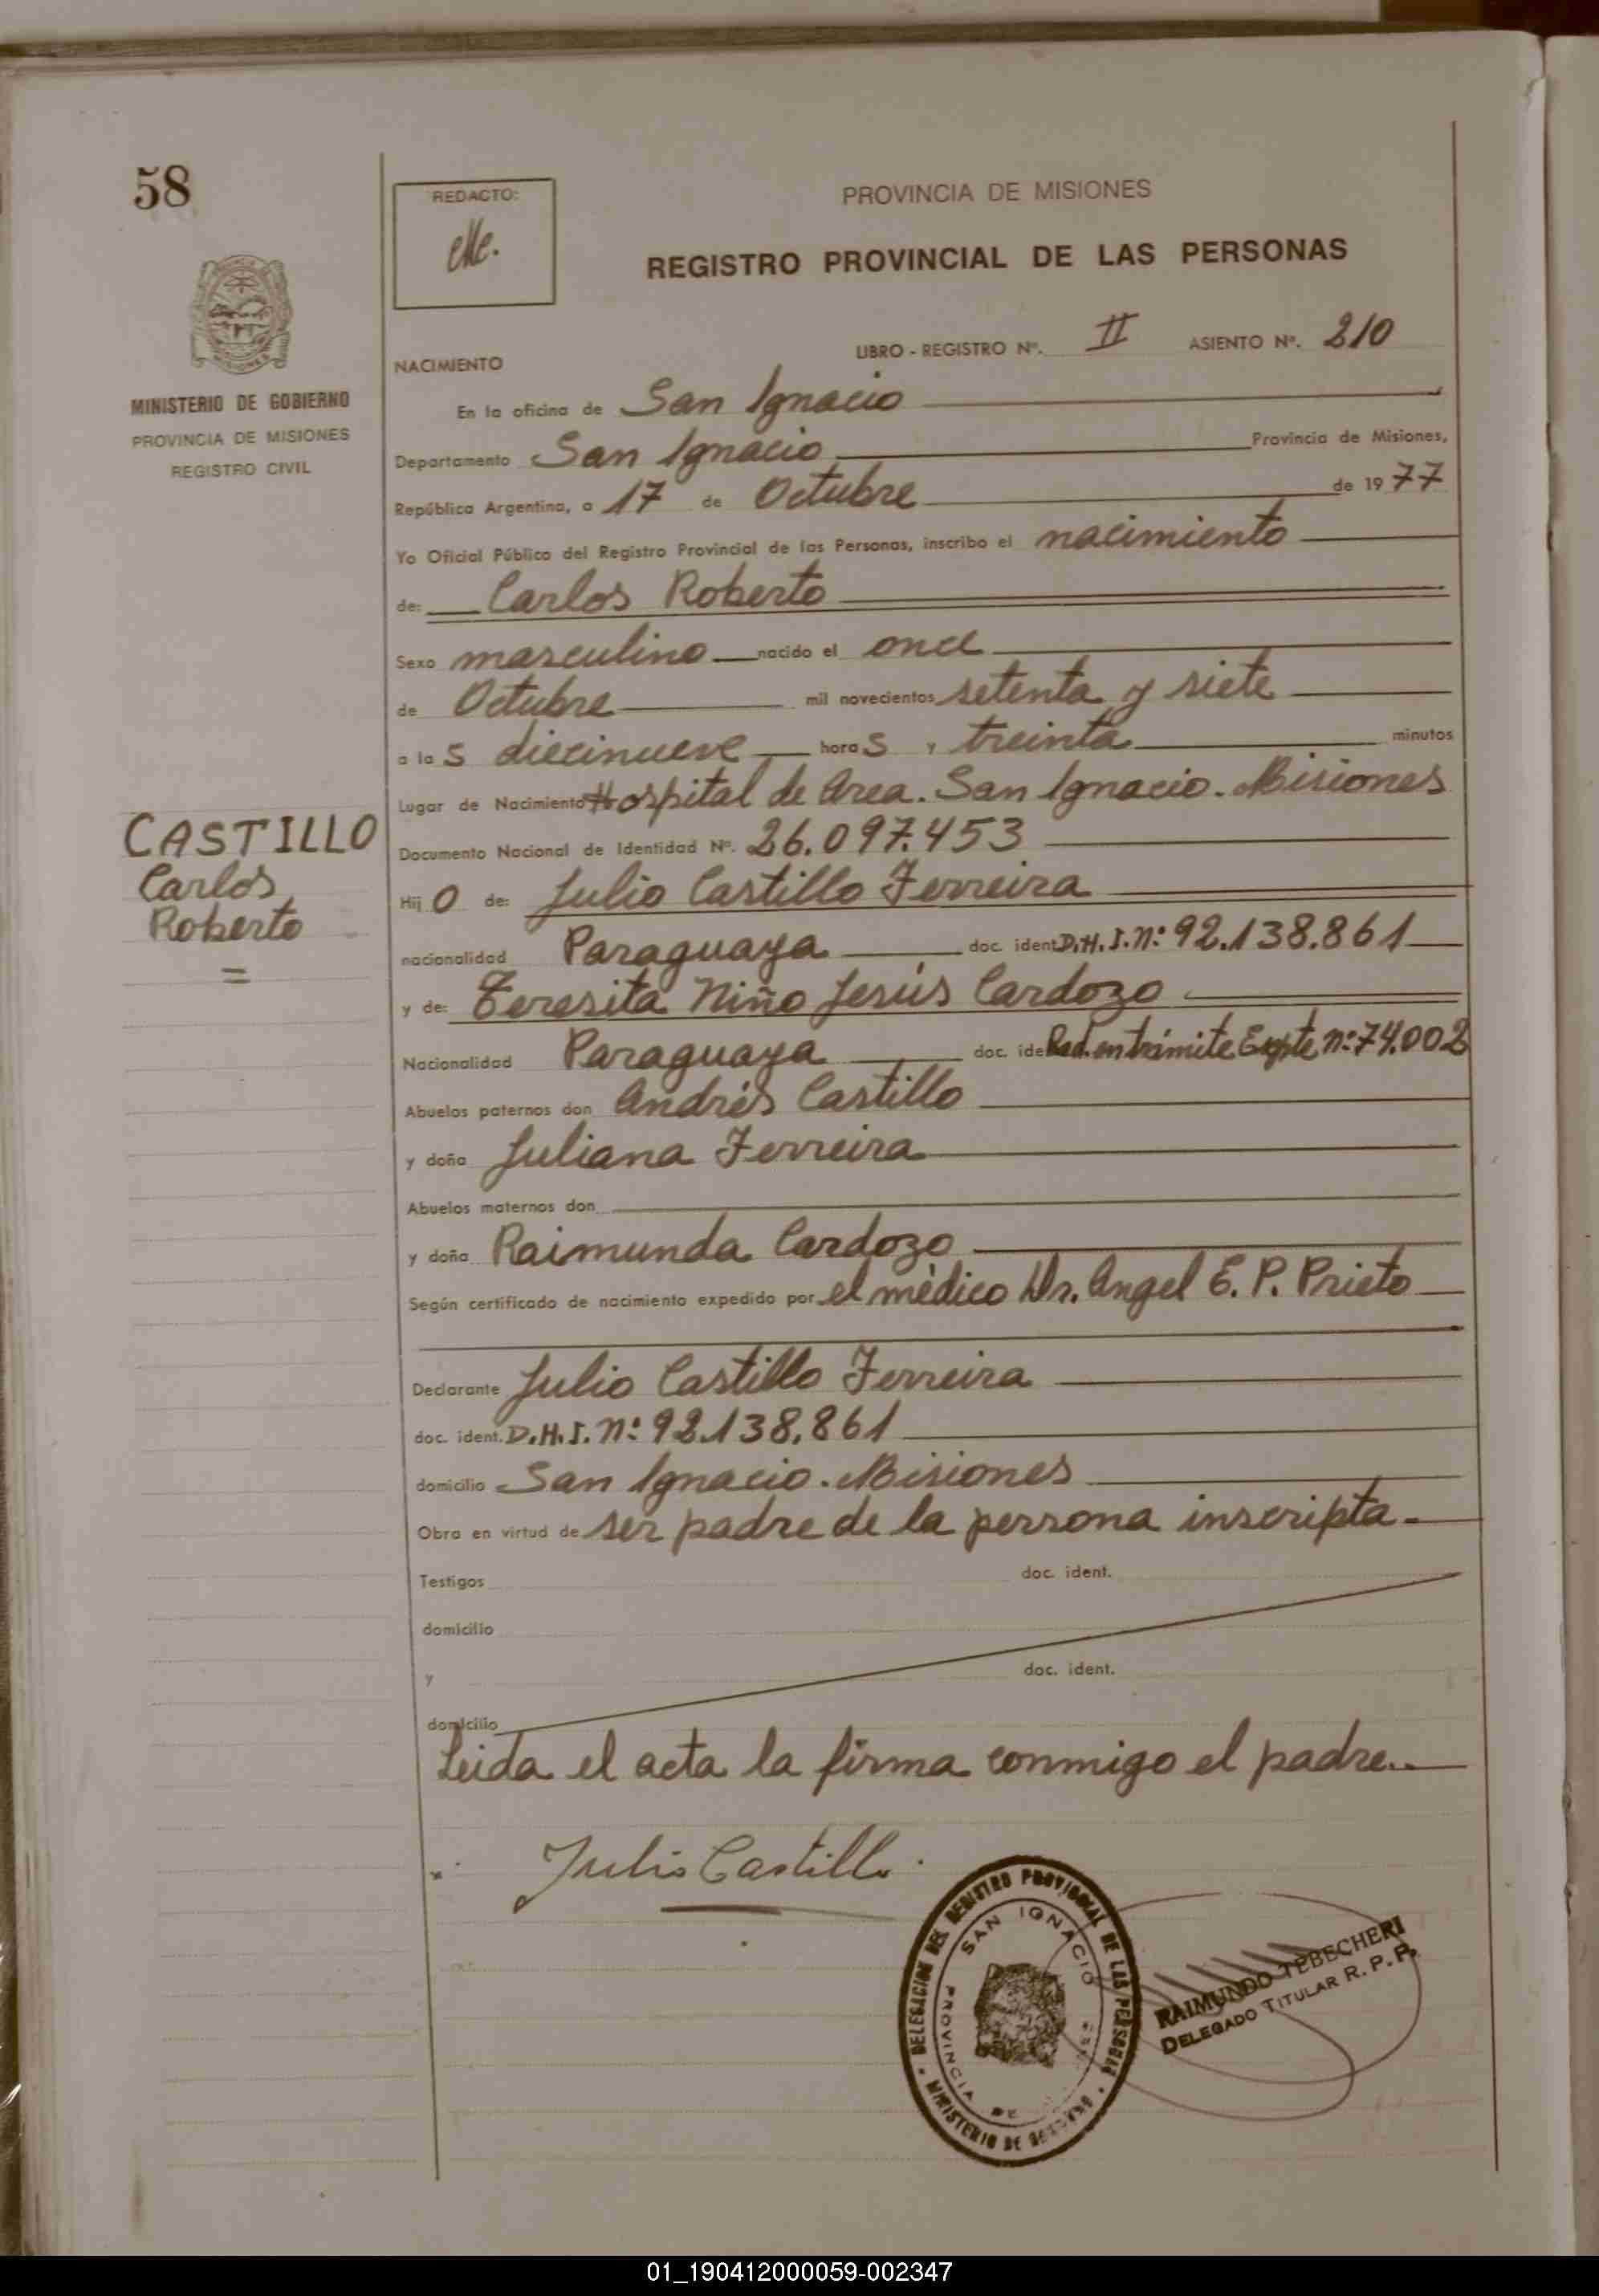 58
REDACTO:
PROVINCIA DE MISIONES
REGISTRO PROVINCIAL DE LAS PERSONAS
LIBRO - REGISTRO Nº. II ASIENTO Nº. 210
NACIMIENTO
MINISTERIO DE GOBIERNO
PROVINCIA DE MISIONES
REGISTRO CIVIL
En la oficina de San Ignacio
Departamento San Ignacio Provincia de Misiones,
República Argentina, a 17 de Octubre de 1977
Yo Oficial Público del Registro Provincial de las Personas, inscribo el nacimiento
de: Carlos Roberto
Sexo masculino nacido el once
de Octubre mil novecientos setenta y siete
a las diecinueve horas y treinta minutos
Lugar de Nacimiento Hospital de Area. San Ignacio. Misiones
CASTILLO
Carlos
Roberto
Documento Nacional de Identidad Nº. 26.097.453
Hijo de: Julio Castillo Ferreira
nacionalidad Paraguaya doc. ident D.N.I. Nº: 92.138.861
y de: Teresita Niño Jesús Cardozo
Nacionalidad Paraguaya doc. ide Rad. en trámite Expte nº: 74.002
Abuelos paternos don Andrés Castillo
y doña Juliana Ferreira
Abuelos maternos don
y doña Raimunda Cardozo
Según certificado de nacimiento expedido por el médico Dr. Angel E. P. Prieto
Declarante Julio Castillo Ferreira
doc. ident. D.N.I. Nº: 92.138.861
domicilio San Ignacio. Misiones
Obra en virtud de ser padre de la persona inscripta.
Testigos doc. ident.
domicilio
y doc. ident.
domicilio
Leida el acta la firma conmigo el padre.
Julio Castillo
DELEGACION DEL REGISTRO PROVINCIAL DE LAS PERSONAS
SAN IGNACIO
PROVINCIA DE
MINISTERIO DE GOBIERNO
RAIMUNDO TEBECHERI
DELEGADO TITULAR R. P. P.
01_190412000059-002347